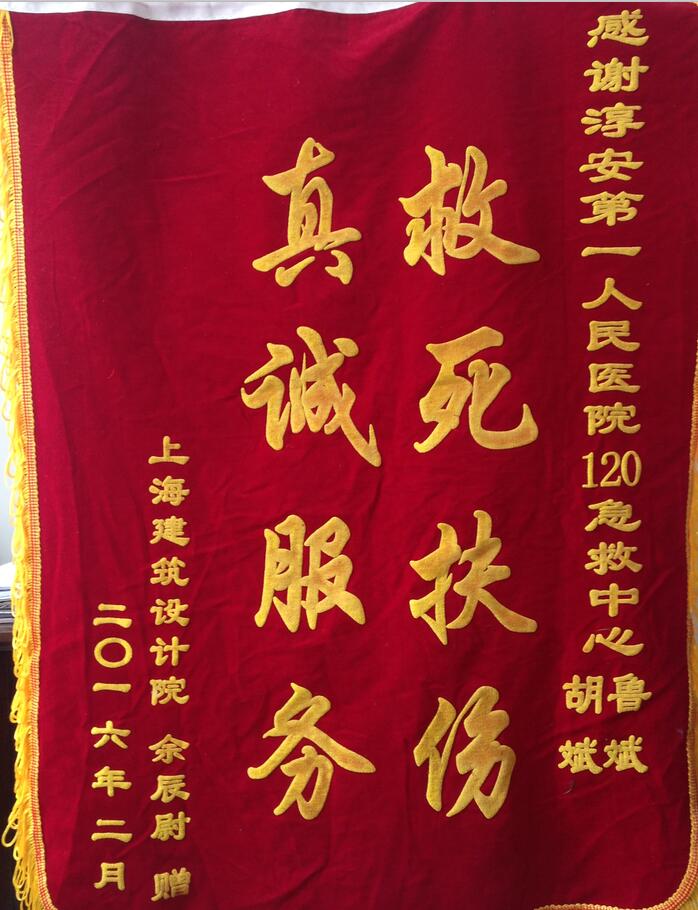 感谢淳安第一人民医院120急救中心
鲁斌
胡斌
救死扶伤
真诚服务
上海建筑设计院 余辰尉 赠
二〇一六年二月